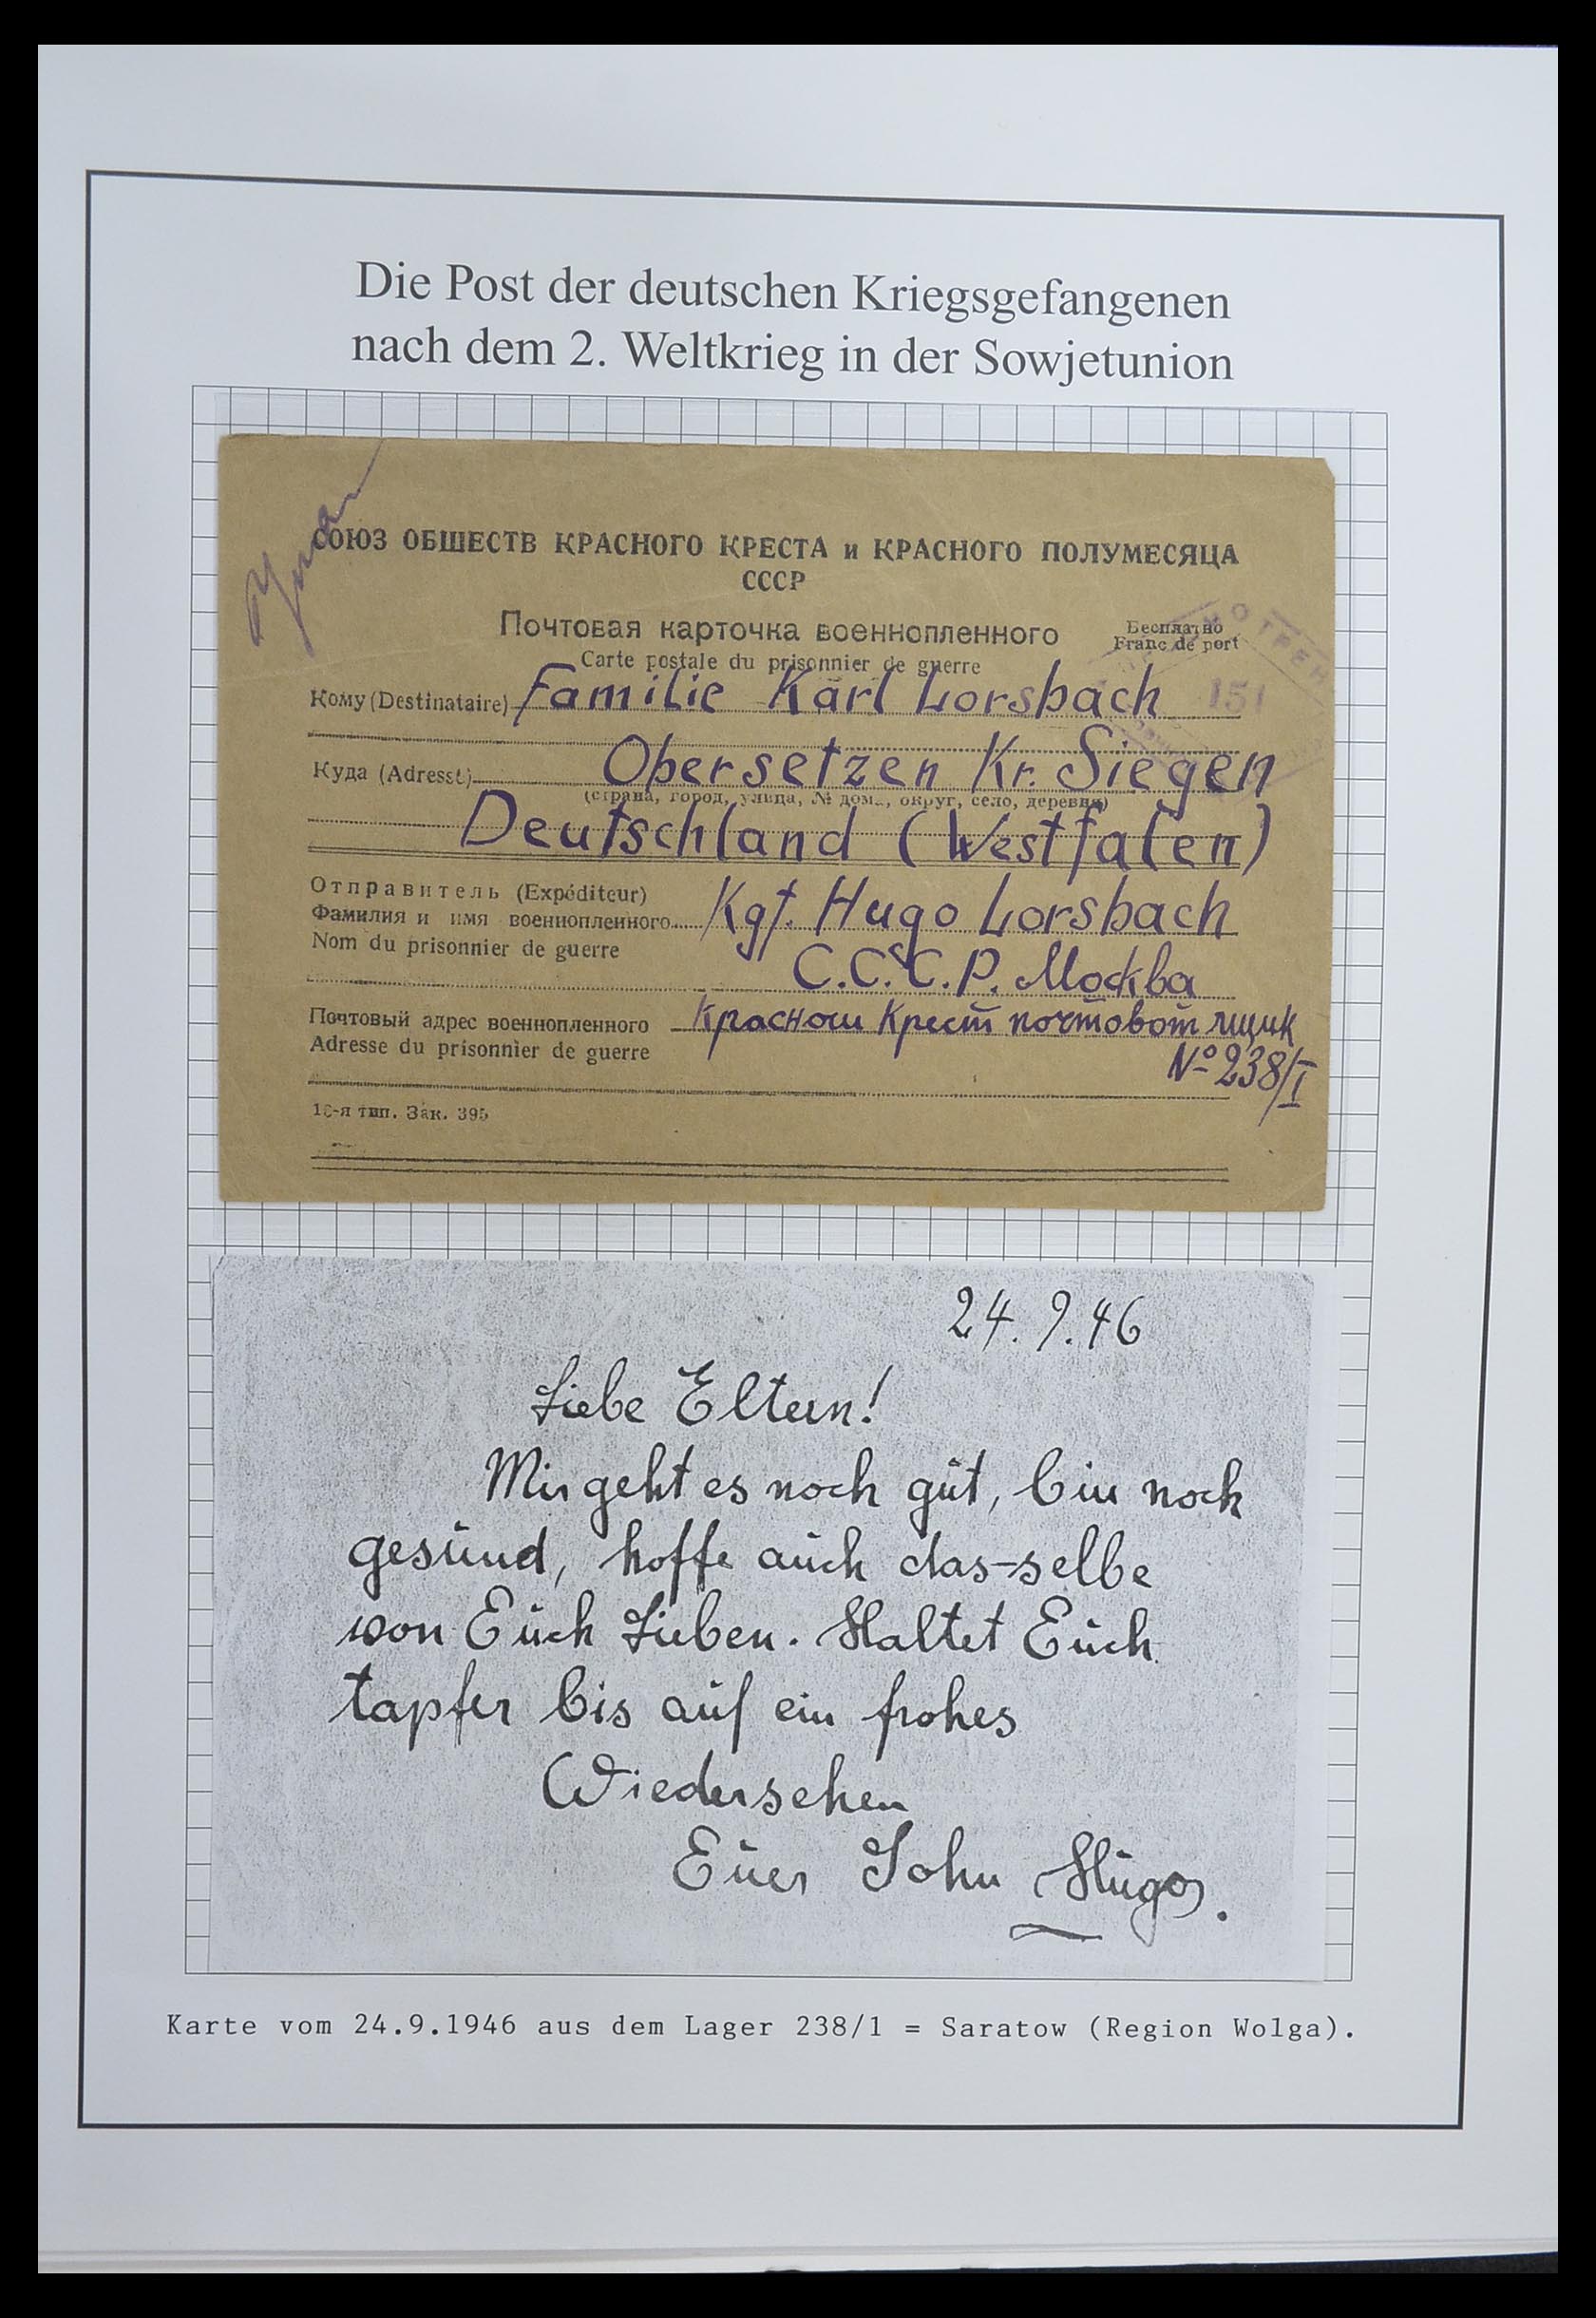 Die Post der deutschen Kriegsgefangenen
nach dem 2. Weltkrieg in der Sowjetunion
СОЮЗ ОБШЕСТВ КРАСНОГО КРЕСТА и КРАСНОГО ПОЛУМЕСЯЦА
СССР
Почтовая карточка военнопленного
Бесплатно
Carte postale du prisonnier de guerre
Franc de port
Кому (Destinataire) Familie Karl Lorsbach
151
Куда (Adresst) Obersetzen Kr. Siegen
(страна, город, улица, № дом., округ, село, деревня)
Deutschland (Westfalen)
Отправитель (Expéditeur)
Фамилия и имя военнопленного Kgf. Hugo Lorsbach
Nom du prisonnier de guerre
С.С.С.Р. Москва
Почтовый адрес военнопленного Красном Крест почтовот ящик
Adresse du prisonnier de guerre
№ 238/I
16-я тип. Зак. 395
24.9.46
Liebe Eltern!
Mir geht es noch gut, bin noch
gesund, hoffe auch das-selbe
won Euch Lieben. Haltet Euch
tapfer bis auf ein frohes
Wiedersehen
Euer Sohn Hugo.
Karte vom 24.9.1946 aus dem Lager 238/1 = Saratow (Region Wolga).